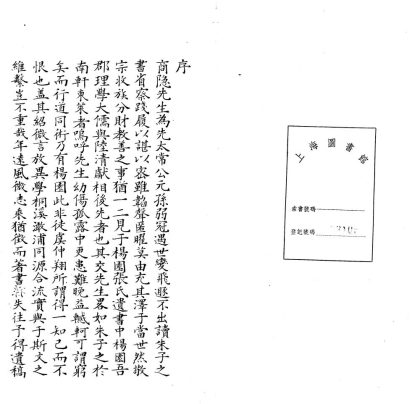 序
商隱先生為先太常公元孫弱冠遇世變飛遯不出讀朱子之
書省察踐履以甚以密雖韜聲匿曜莫由充其澤于當世然教
宗收族分財教善之事猶一二見于楊園張氏遺書中楊園吾
郡理學大儒與陸清獻相後先者也其交先生畧如朱子之於
南軒東萊者嗚呼先生幼傷孤露中更患難晚益轗軻可謂窮
矣而行道同術乃有楊園此非徒虞仲翔所謂得一知己而不
恨也蓋其紹微言放異學桐溪澉浦同源合流實與于斯文之
維繫豈不重哉年遠風微志乘猶徵而著書散失往于得遺稿
上海圖書館
索書號碼
登記號碼